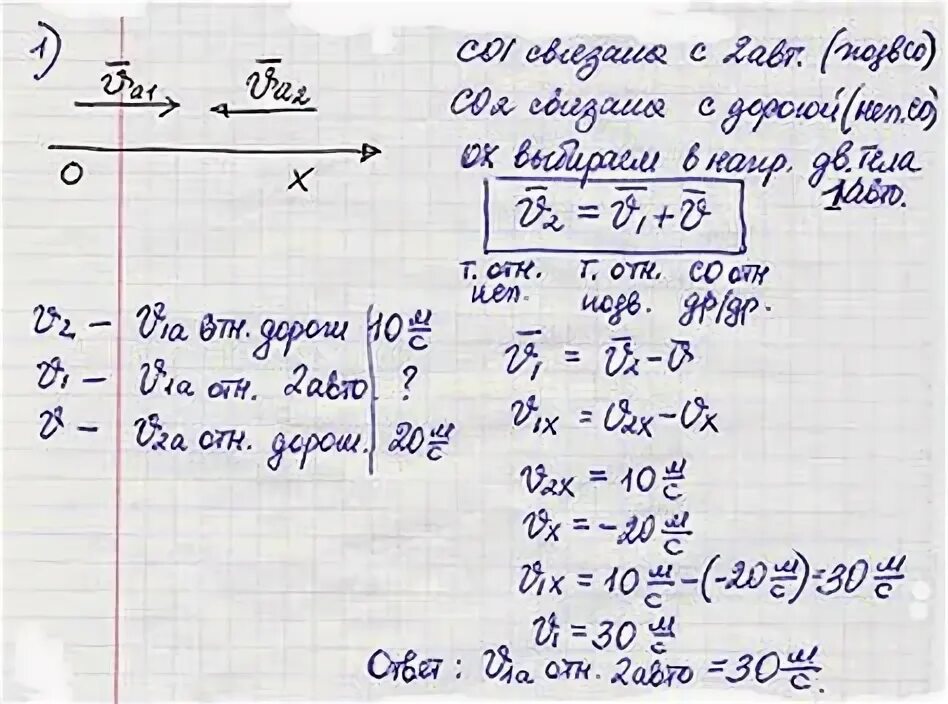 1)
v̄a1 v̄a2
0 x
СО1 связана с 2авт. (подв СО)
СО2 связана с дорогой (неп. СО)
OX выбираем в напр. дв. тела
1авто.
v̄2 = v̄1 + v̄
т. отн. т. отн. СО отн
неп. подв. др/др.
v2 – v1а отн. дорош 10 м/с
v1 – v1а отн. 2авто ?
v – v2а отн. дорош. 20 м/с
v̄1 = v̄2 – v̄
v1x = v2x – vx
v2x = 10 м/с
vx = –20 м/с
v1x = 10 м/с – (–20 м/с) = 30 м/с
v1 = 30 м/с
Ответ : v1а отн. 2авто = 30 м/с.